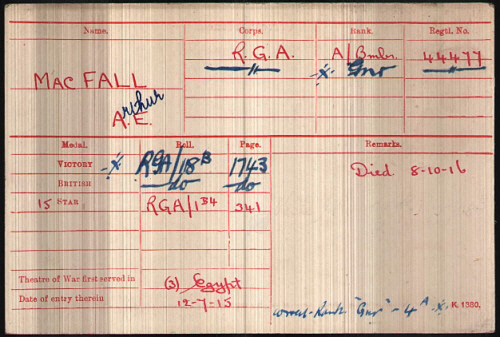 Name. Corps. Rank. Regtl. No.
MacFALL R.G.A. A/Bmbr. 44477
Arthur -x- Gnr
A.E.
Medal. Roll. Page. Remarks.
VICTORY -x- RGA/18B 1743 Died 8-10-16
BRITISH do do
15 STAR RGA/1B4 341
Theatre of War first served in (3) Egypt
Date of entry therein 12-7-15
correct Rank "Gnr" - 4A -x- K. 1380.